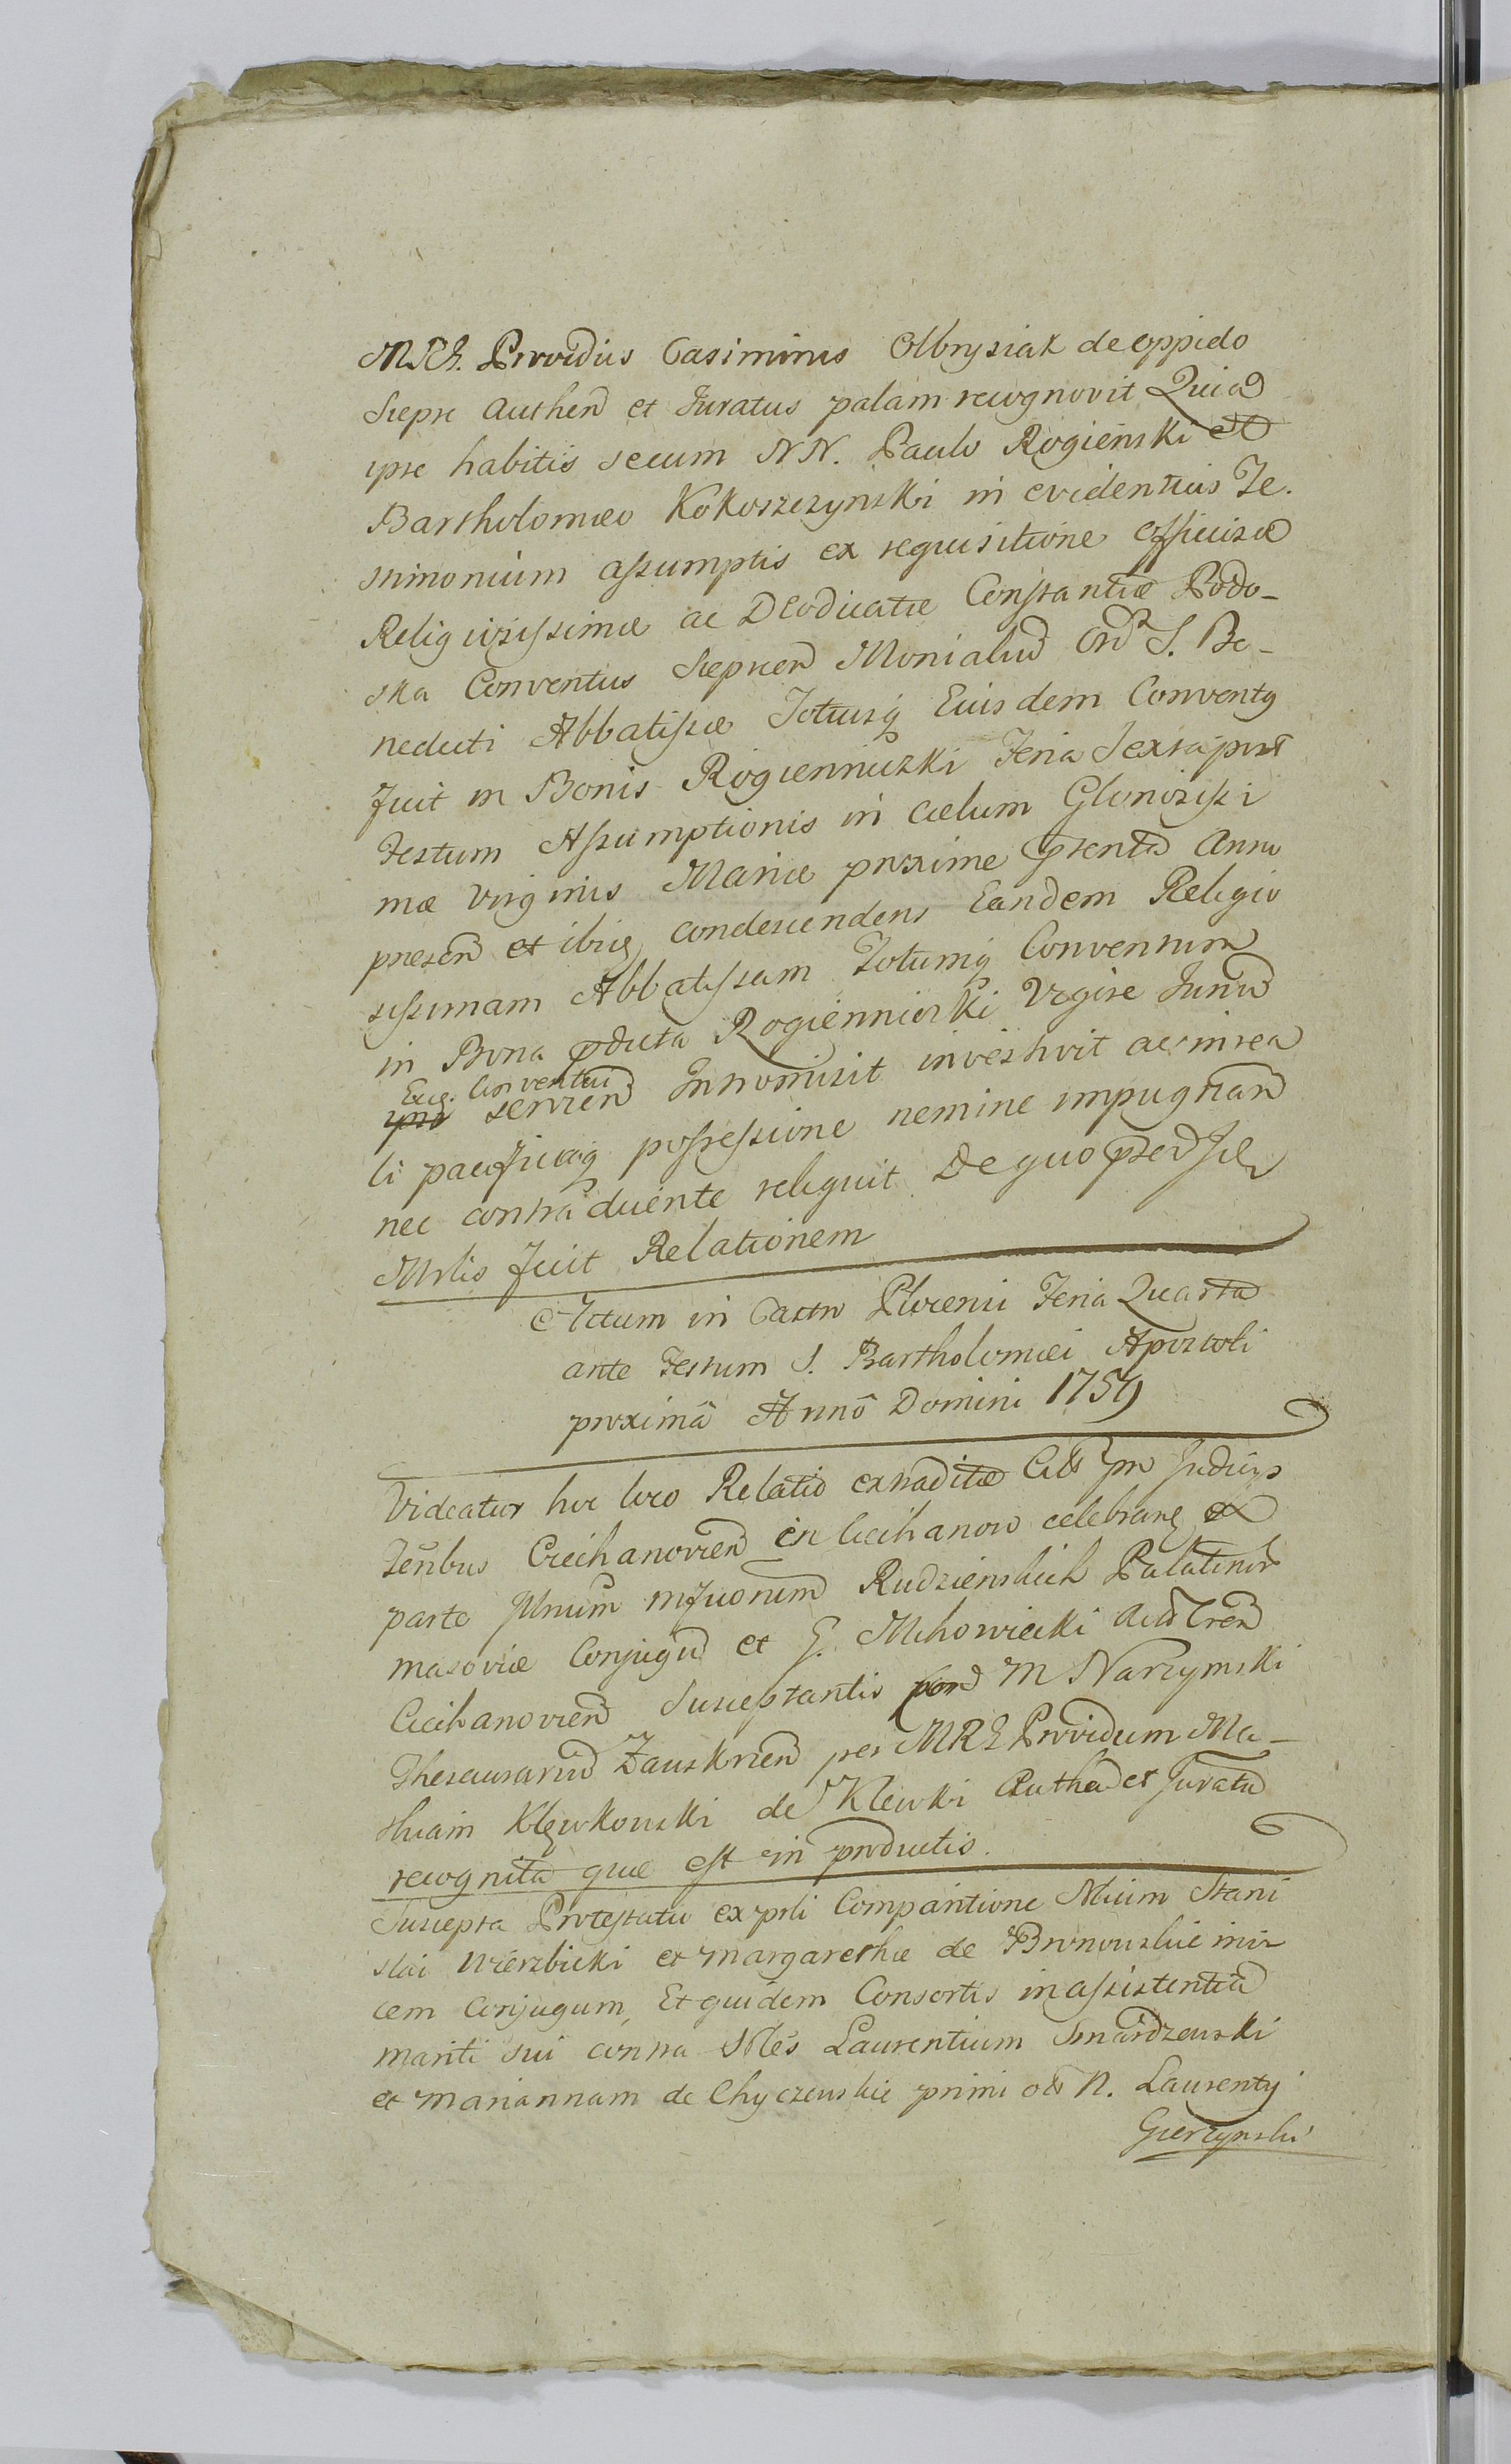 MRG. Providus Casimirus Olbrysiak de oppido
Siepre Authen et Juratus palam recognovit Quia
ipse habitis secum NN. Paulo Rogieński et
Bartholomæo Kokoszczynski in evidentius Te.
stimonium assumptis ex requisitione officiosa
Religiosissimæ ac Deodicatæ Constantiæ Podo-
ska Conventus Siepscen Monialiu Ord S. Be-
nedicti Abbatissæ Totiusq Eiusdem Conventq
fuit in Bonis Rogienniczki Feria Sexta post
Festum Assumptionis in cælum Gloriosissi
mæ Virginis Mariæ proxime Anno
presen et ibiq condescendens Eandem Religio
sissimam Abbatissam Totumq Conventum
in Bona pdicta Rogienniczki Vigore Jurium
Eiusq. Conventui
servien Intromisit investivit ac in rea
li pacificaq possessione nemine impugnan
nec contradicente reliquit De quo
fecit Relationem
Actum in Castro Plocensi Feria Quarta
ante Festum S. Bartholomæi Apostoli
proximâ Annô Domini 1759
Videatur hoc loco Relatio extraditæ pro Judicijs
Tenbus Ciechanovien in Ciechanow celebran ex
parte Mfcorum Rudzienskich Palatinor
Masoviæ Conjugu et G. Mchowiecki
Ciechanovien Susceptantis M Narzymski
Thesaurariu Zauskrien per MRG Providum Ma-
thiam Klewkowski de Klewki Authen et Juratu
recognita quæ est in productis.
Suscepta Protestatio ex psli Comparitione Nlium Stani
slai Wierzbicki et Margarethæ de Bronowskie invi
cem Conjugum, Et quidem Consortis in assistentia
mariti sui contra Nles Laurentium Smardzewski
et Mariannam de Chyczewskie primi N. Laurentij
Gierzynski